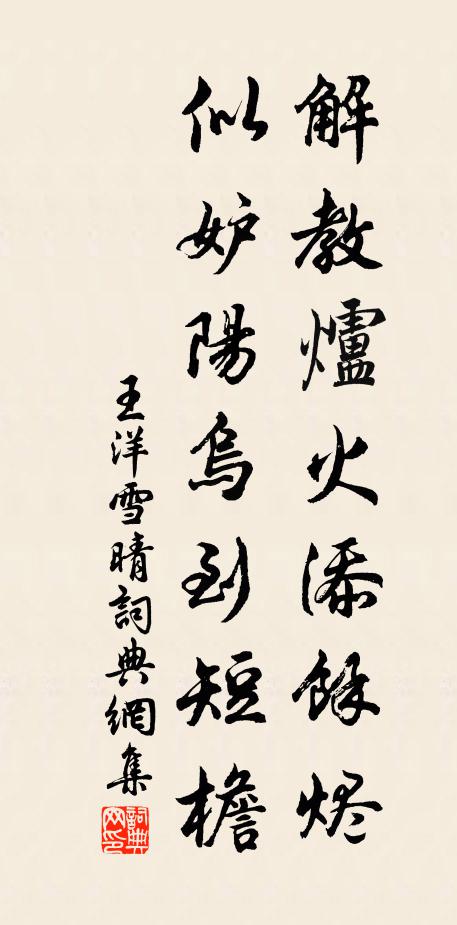 解教爐火添餘烬
似妒陽烏到短檐
王洋雪晴詞典網集
詞典網印